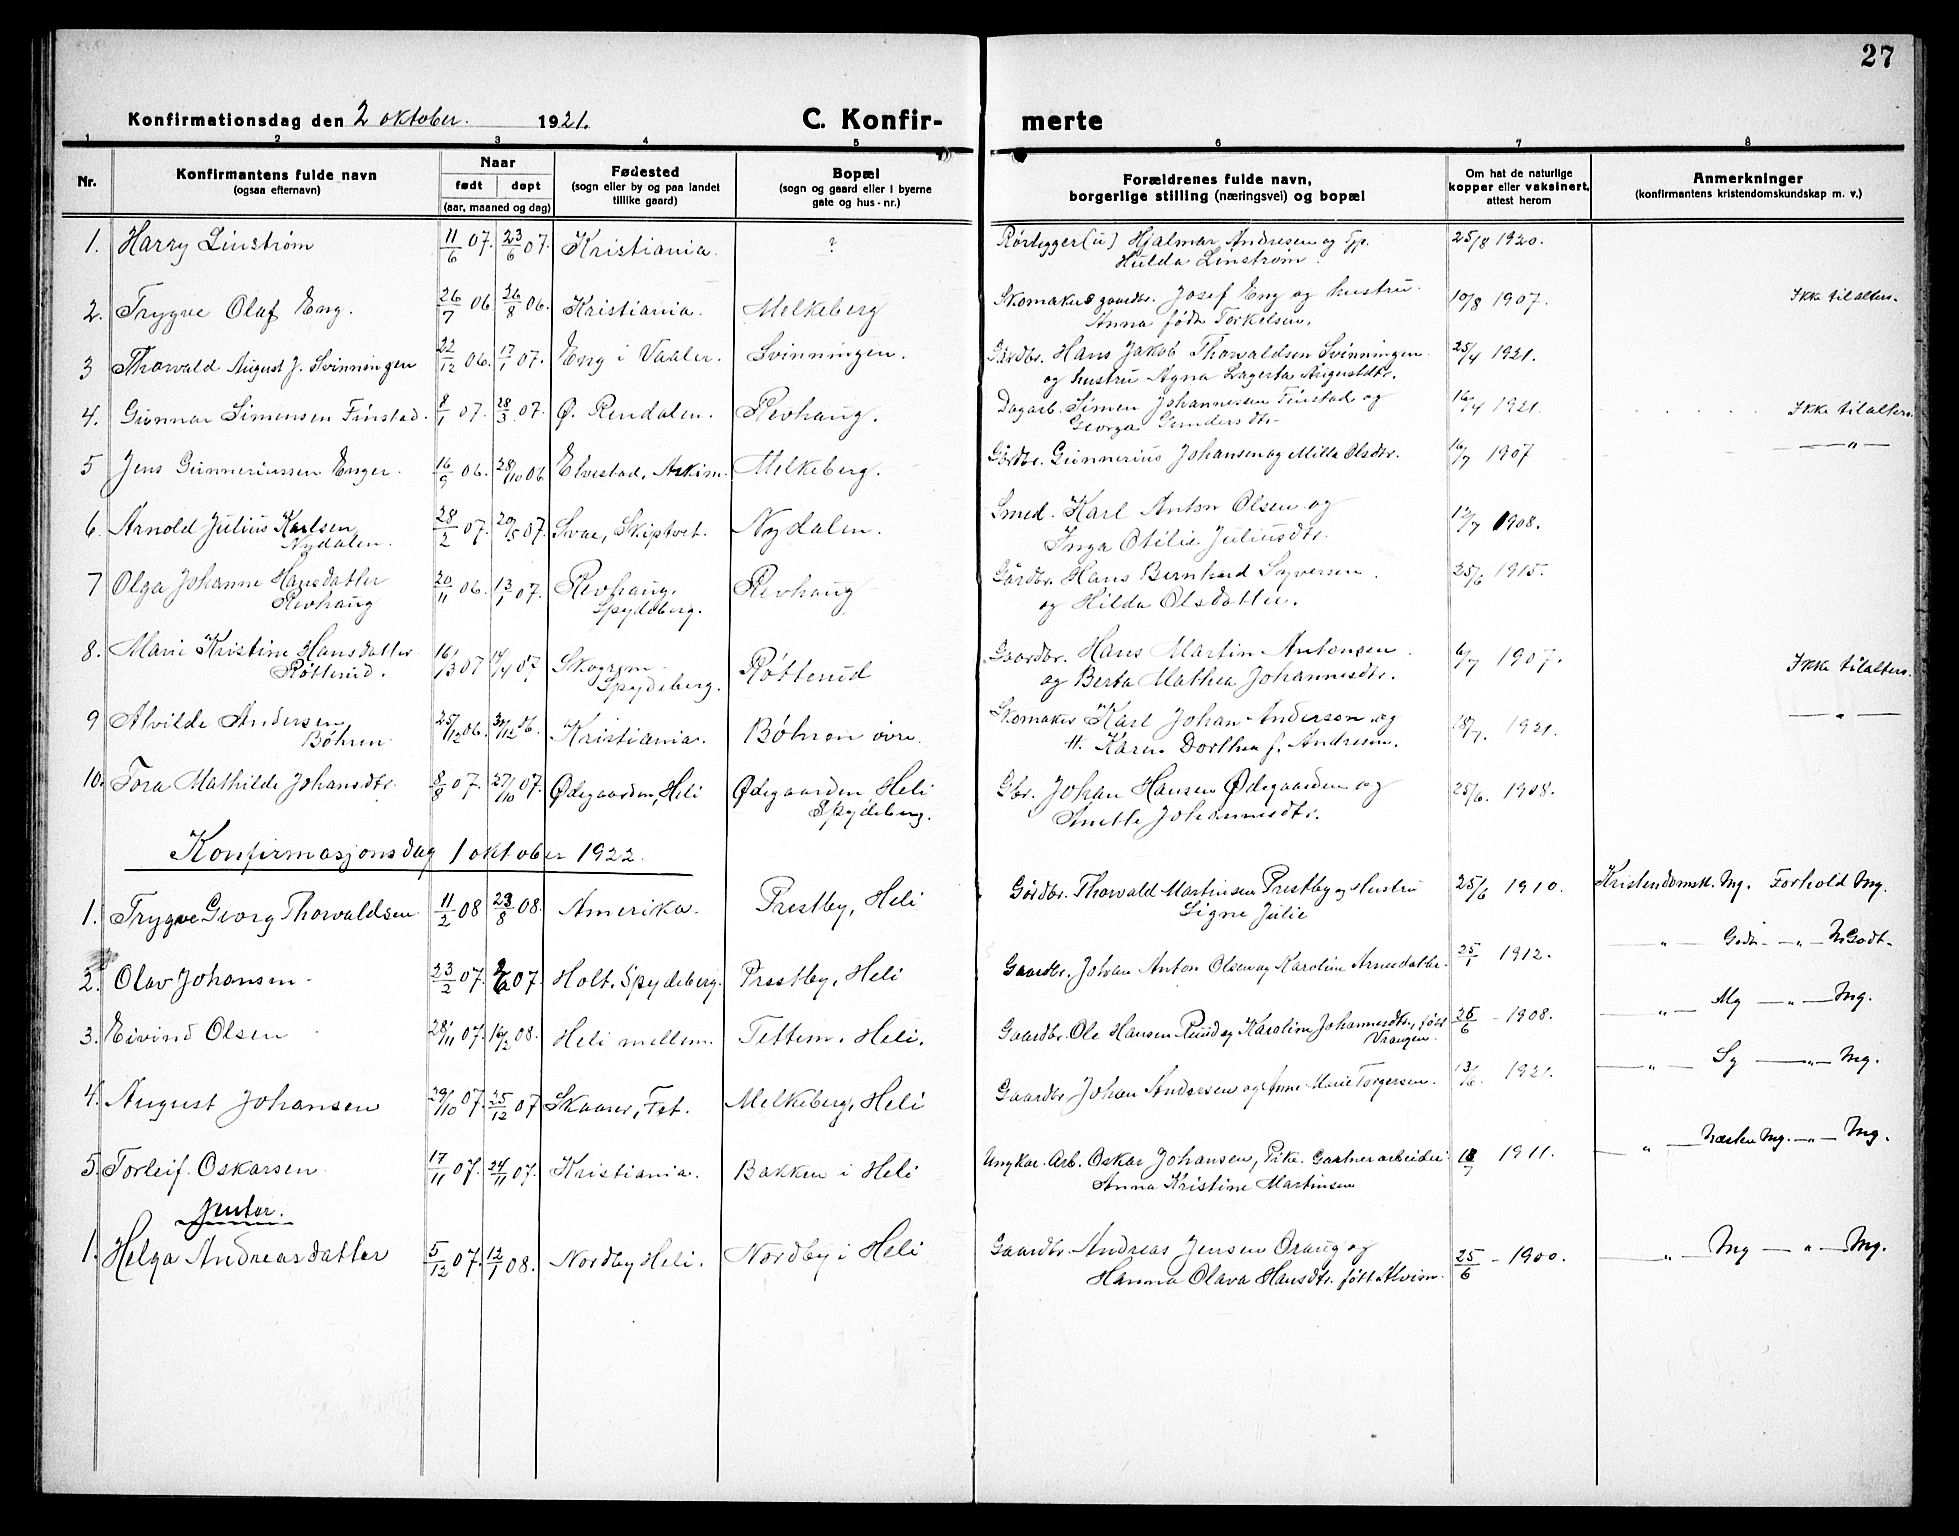 27
Konfirmationsdag den 2 oktober. 1921. C. Konfir- merte
1 2 3 4 5 6 7 8
Nr. Konfirmantens fulde navn (ogsaa efternavn) Naar født døpt (aar, maaned og dag) Fødested (sogn eller by og paa landet tillike gaard) Bopæl (sogn og gaard eller i byerne gate og hus-nr.) Forældrenes fulde navn, borgerlige stilling (næringsvei) og bopæl Om hat de naturlige kopper eller vaksinert, attest herom Anmerkninger (konfirmantens kristendomskundskap m. v.)
1. Harry Linstrøm 11/6 07. 23/6 07. Kristiania. ? Rørlegger (u) Hjalmar Andresen og Tp. 25/8 1920.
Hulda Linstrøm.
2. Trygve Olaf Eng. 26/7 06 26/8 06. Kristiania. Melkeberg Skomaker & gaardbr. Josef Eng og hustru 10/8 1907. Ikke til alters.
Anna født Torkelsen.
3 Thorvald August J. Svinningen 22/12 06. 17/1 07. Eng i Vaaler. Svinningen. Gårdbr. Hans Jakob Thorvaldsen Svinningen 25/4 1921.
og hustru Agna Lagerta Augustdtr.
4. Gunnar Simensen Finstad. 8/1 07. 28/3 07. Ø. Rendalen. Revhaug. Dagarb. Simen Johannesen Finstad og 16/4 1921. Ikke til alters.
Georga Gundersdtr.
5 Jens Gunneriussen Enger. 16/9 06. 28/10 06 Elvestad, Askim. Melkeberg. Gårdbr. Gunnerius Johansen og Milla Olsdtr. 16/7 1907 — " —
6. Arnold Julius Karlsen 28/2 07. 20/5 07. Svae, Skiptvet. Nydalen. Smed. Karl Anton Olsen og 12/7 1908.
Nydalen. Inga Otilie Juliusdtr.
7 Olga Johanne Hansdatter 20/11 06. 13/1 07. Revhaug, Revhaug Gårdbr. Hans Bernhard Syversen 25/6 1915.
Revhaug Spydeberg. og Hilda Olsdatter.
8. Marie Kristine Hansdatter 16/3 07 14/4 07 Skogrym Røtterud Gaardbr. Hans Martin Antonsen 6/7 1907. Ikke til alters.
Røtterud. Spydeberg. og Berta Mathea Johannesdtr.
9 Alvilde Andersen 25/12 06. 30/12 06. Kristiania. Bøhren øvre. Skomaker Karl Johan Anderson og 18/7. 1921. — " —
Bøhren H. Karen Dorthea f. Andresen.
10. Tora Mathilde Johansdtr. 8/8 07. 27/10 07. Ødegaarden, Heli Ødegaarden Heli Gbr. Johan Hansen Ødegaarden og 25/6. 1908.
Spydeberg. Anette Johannesdtr.
Konfirmasjonsdag 1 oktober 1922.
1. Trygve Georg Thorvaldsen 11/2 08 23/8 08. Amerika. Prestby, Heli Gårdbr. Thorvald Martinsen Prestby og Hustru 25/6 1910. Kristendomsk. Mg. Forhold Mg.
Signe Julie
2. Olav Johansen 23/2 07. 07. Holt, Spydeberg. Prestby, Heli Gaardbr. Johan Anton Olsen og Karoline Arnesdatter. 25/1 1912. — " — Godt. — " — Godt.
3. Eivind Olsen 28/11 07. 16/2 08. Heli mellem. Tettem, Heli. Gaardbr. Ole Hansen Rud og Karoline Johannesdtr., født 25/6 - 1908. — " — Mg — " — Mg.
Vrangen.
4. August Johansen 29/10 07. 25/12 07 Skaarer, Fet. Melkeberg, Heli Gaardbr. Johan Andersen og Anne Marie Torgersen. 13/6. 1921. — " — Sg — " — Mg.
5. Torleif Oskarsen 17/11 07. 24/11 07. Kristiania. Bakken i Heli Ungkar. Arb. Oskar Johansen, Pike. Gartnerarbeider 18/7 1911. — " — Næsten Mg. — " — Mg.
Anna Kristine Martinsen
Jenter.
1. Helga Andreasdatter 5/12 07. 12/1 08. Nordby Heli. Nordby i Heli Gaardbr. Andreas Jensen Oraug og 25/6 - 1900. — " — Mg — " — Mg.
Hanna Olava Hansdtr. født Alvim.